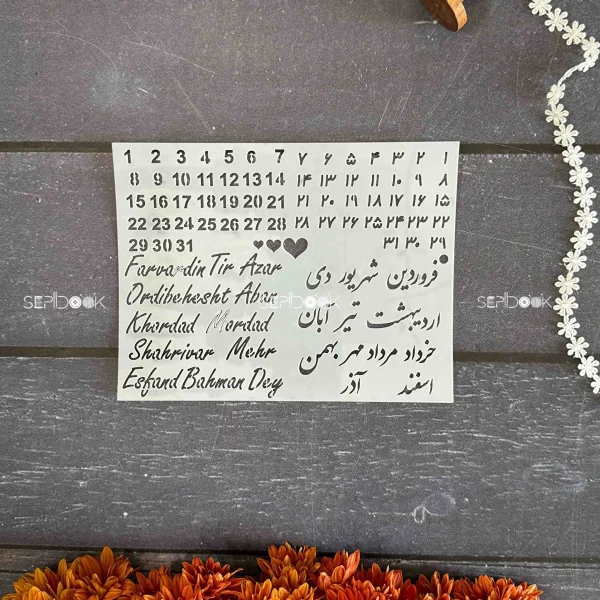 1 2 3 4 5 6 7
8 9 10 11 12 13 14
15 16 17 18 19 20 21
22 23 24 25 26 27 28
29 30 31
۱ ۲ ۳ ۴ ۵ ۶ ۷
۸ ۹ ۱۰ ۱۱ ۱۲ ۱۳ ۱۴
۱۵ ۱۶ ۱۷ ۱۸ ۱۹ ۲۰ ۲۱
۲۲ ۲۳ ۲۴ ۲۵ ۲۶ ۲۷ ۲۸
۲۹ ۳۰ ۳۱
Farvardin Tir Azar
Ordibehesht Aban
Khordad Mordad
Shahrivar Mehr
Esfand Bahman Dey
فروردین شهریور دی
اردیبهشت تیر آبان
خرداد مرداد مهر بهمن
اسفند آذر
SEPIDOOK SEPIDOOK SEPIDOOK